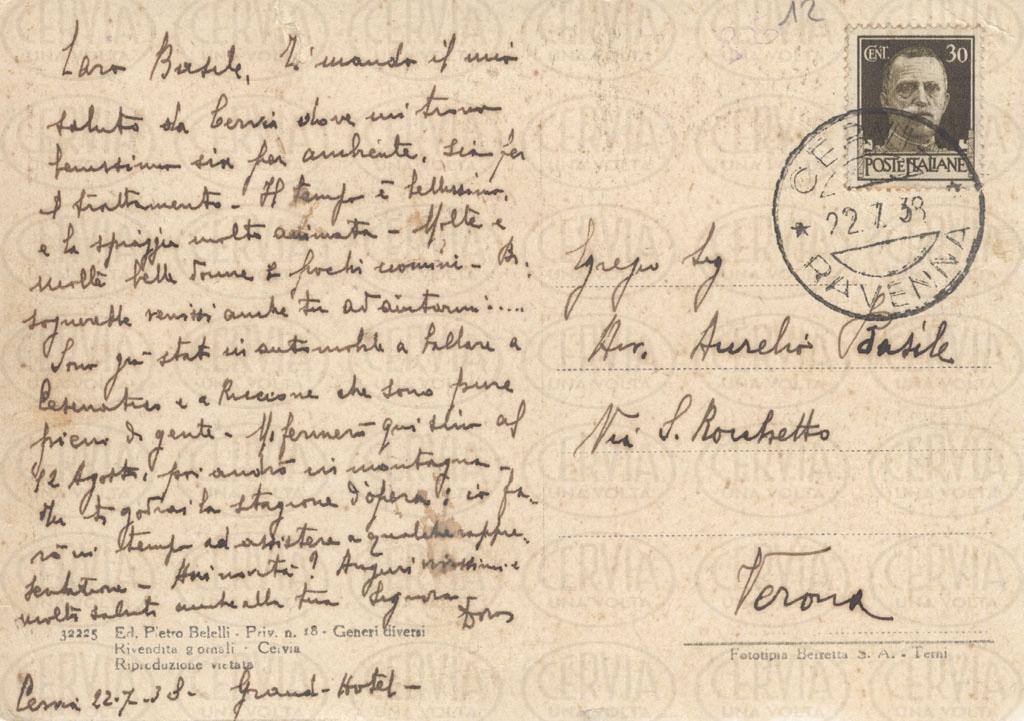 12
Caro Basile, Ti mando il mio
saluto da Cervia dove mi trovo
benissimo sia per ambiente, sia per
il trattamento - Il tempo è bellissimo,
e la spiaggia molto animata - Molte e
molte belle donne e pochi uomini - Bi,
sognerebbe venissi anche tu ad aiutarmi:....
Sono già stato in automobile a ballare a
Cesenatico e a Riccione che sono pure
pieni di gente - Mi fermerò qui sino al
12 Agosto, poi andrò in montagna -
Tu ti godrai la stagione d'opera; io fa-
rò in tempo ad assistere a qualche rappre,
sentazione - Hai novità? Auguri vivissimi e
molti saluti anche alla tua Signora -
32225 Ed. Pietro Belelli - Priv. n. 18 - Generi diversi
Rivendita giornali - Cervia
Riproduzione vietata
Cervia 22-7-38 - Grand-Hotel -
CENT. 30
POSTE ITALIANE
CERVIA
22.7.38
RAVENNA
Egregio Sig
Avv. Aurelio Basile
Via S. Rocchetto
Verona
Fototipia Berretta S. A. - Terni